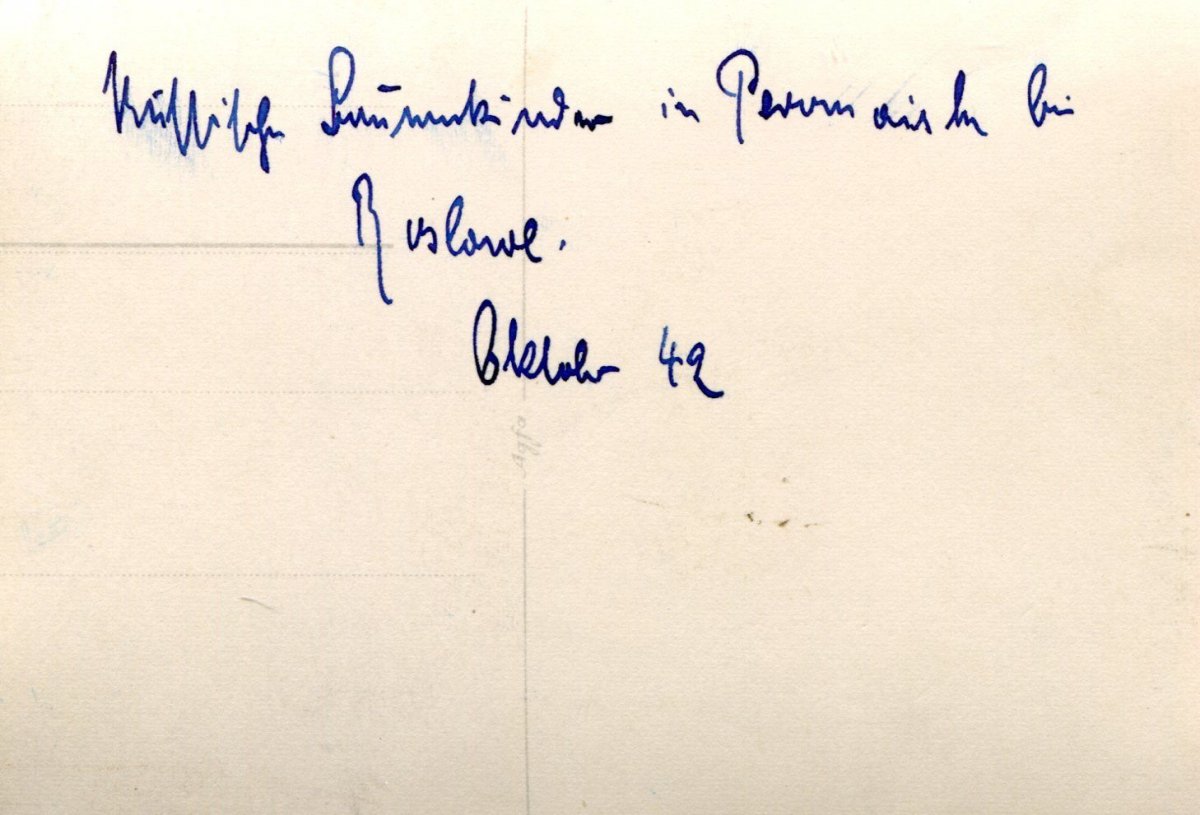 Russische Bauernkinder in Perwomaisk bei
Roslawl.
Oktober 42